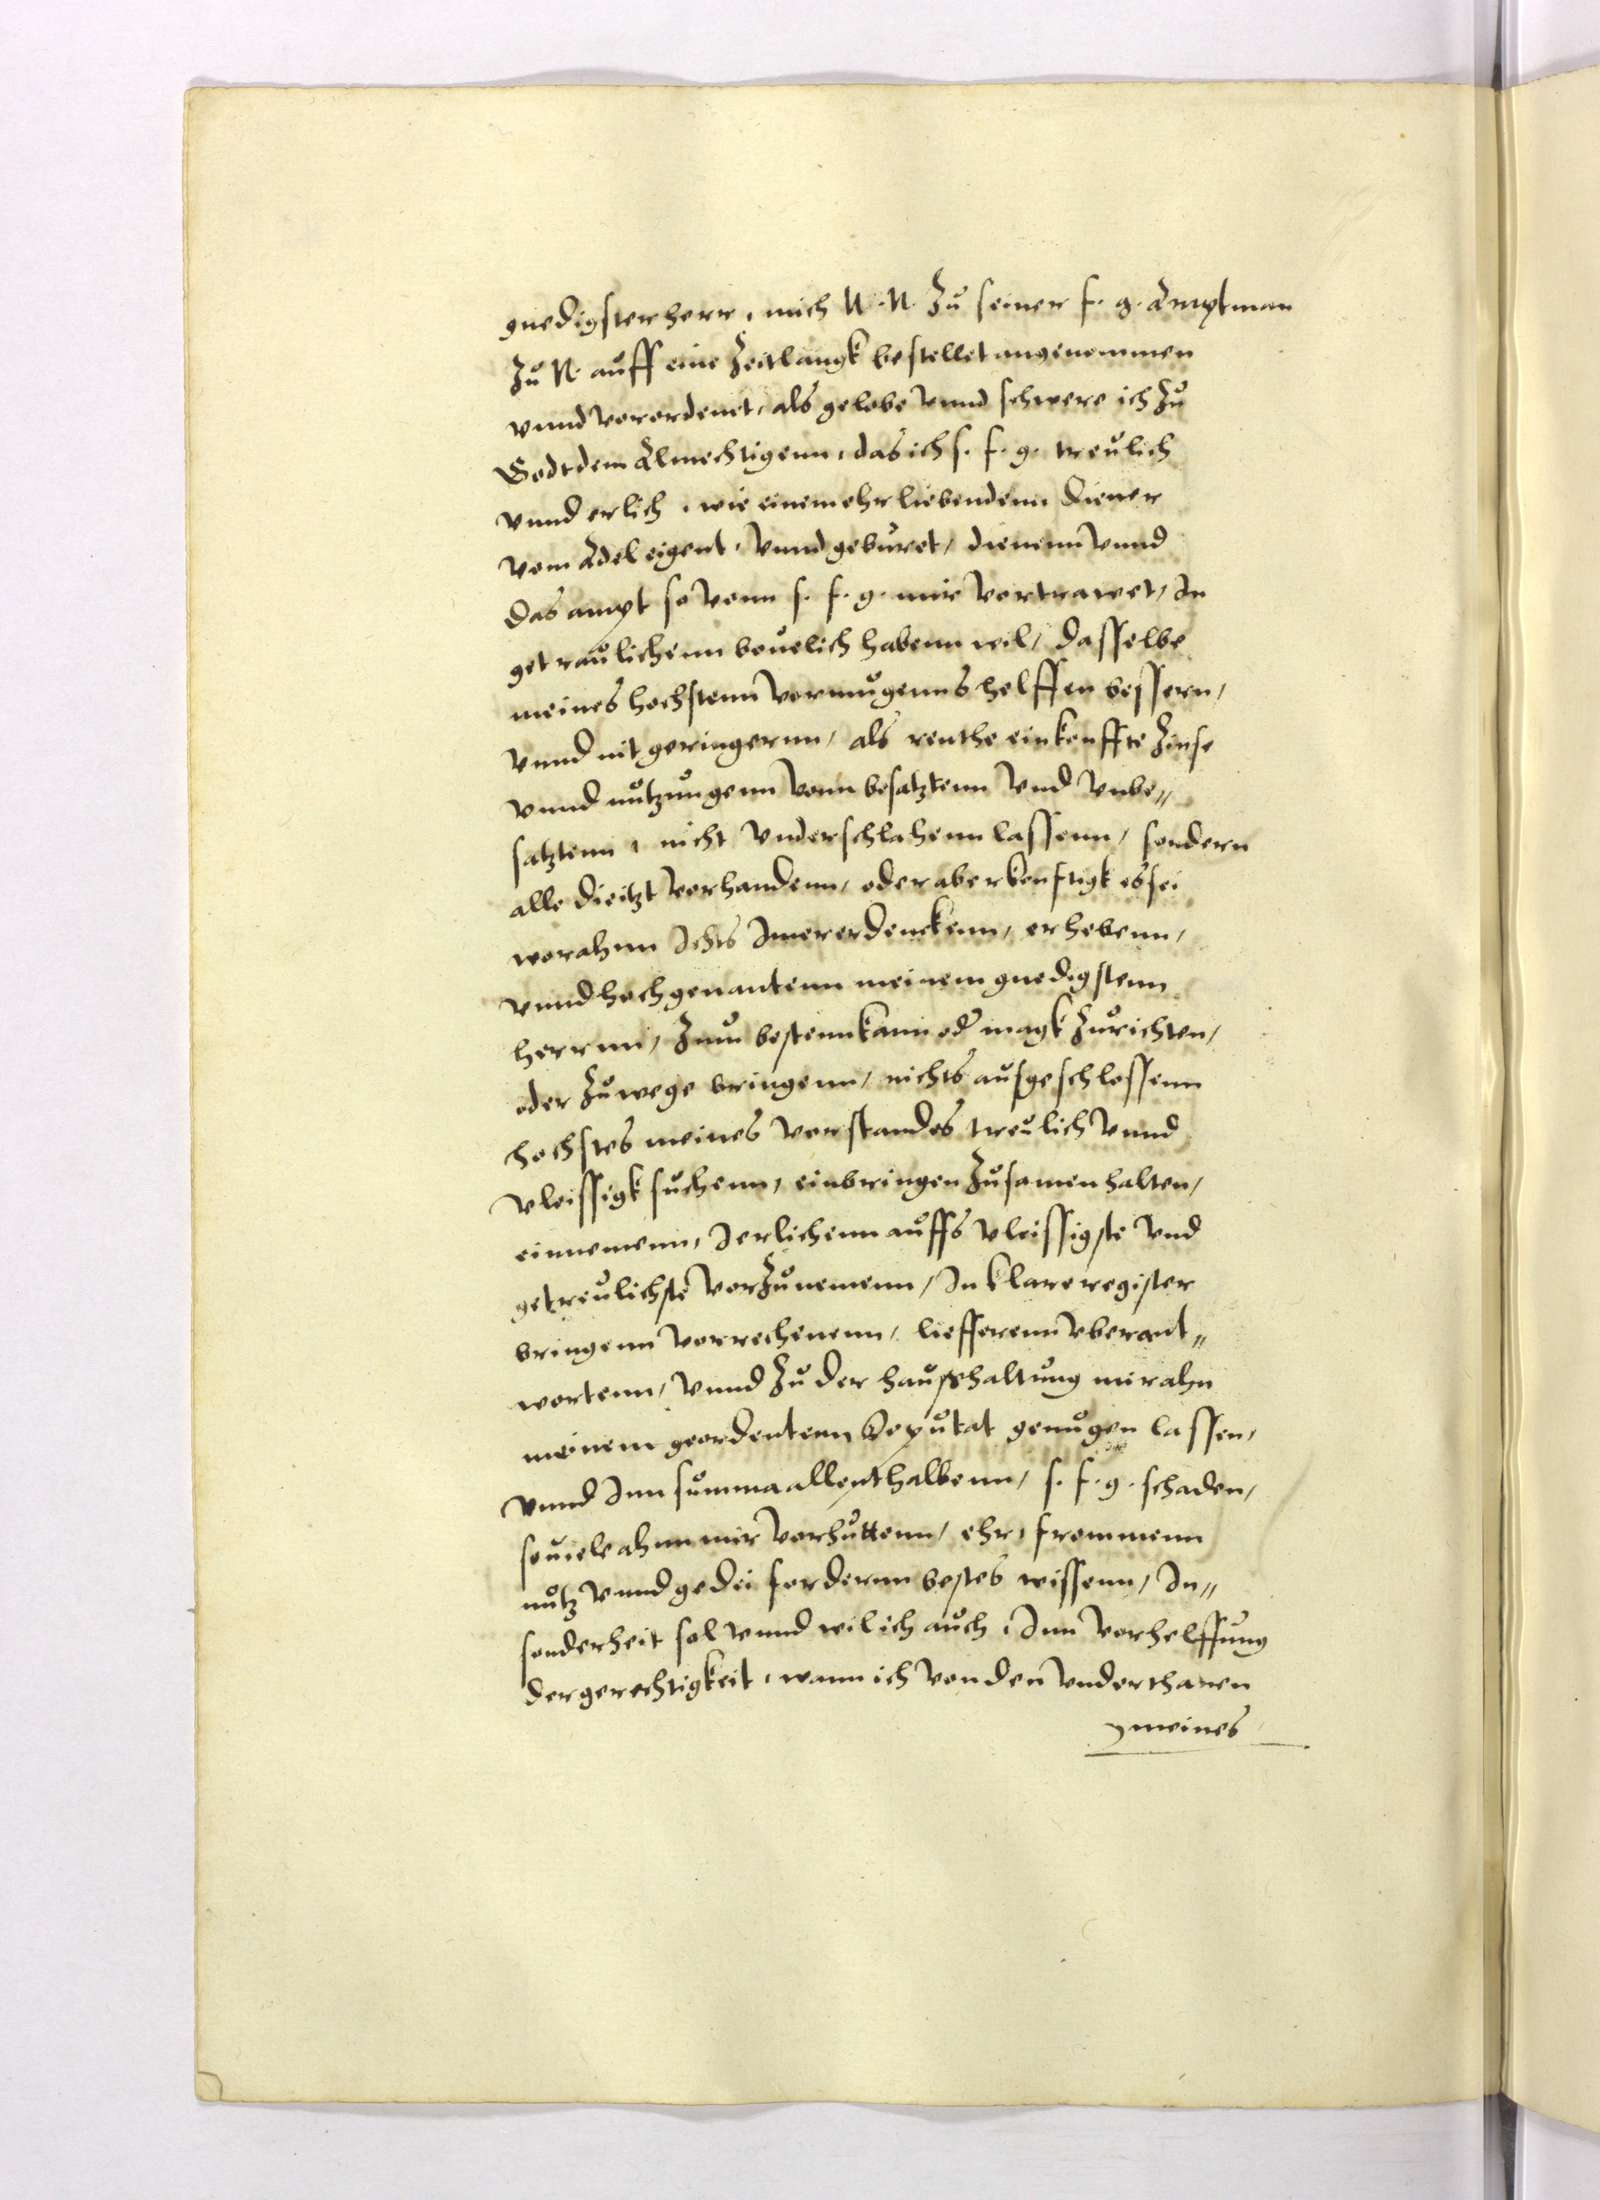 gnedigster herr, mich N. N. Zu seiner f. g. Amptman
Zu N. auff eine Zeitlangk bestellet angenommen
vnnd verordenet, als gelobe vnnd schwere ich Zu
Godt dem Almechtigenn, das ich s. f. g. treulich
vnnd erlich, wie einem ehrliebendenn Diener
vom Adel eigent, vnnd geburet, dienenn vnnd
das ampt so vonn s. f. g. mir vertrawet, In
getraulichenn beuelich habenn wil, dasselbe
meines hochstenn vermugenns helffen bessern,
vnnd nit geringernn, als renthe einkonffte Zinse
vnnd nutzungenn vonn besatztenn vnd vnbe„
satztenn, nicht vnderschlahenn lassenn, sondern
alle die itzt vorhandenn, oder aber konftigk es sei
worahnn Ichts Immer erdenckenn, erhebenn,
vnnd hochgenantenn meinem gnedigstenn
herrnn, Zum bestenn kann oder magk Zurichten,
oder Zuwege bringenn, nichts ausgeschlossenn
hochstes meines verstandes treulich vnnd
vleissigk suchenn, einbringen Zusamen halten,
einnemenn, Ierlichenn auffs vleissigste vnd
getreulichste vorZunemenn, In klare register
bringenn verrechenenn, liefferenn vberant„
wortenn, vnnd Zu der haußhaltung mir ahn
meinem geordentenn Deputat genugen lassen,
vnnd Inn summa allenthalbenn, s. f. g. schaden,
souiele ahnn mir verhuttenn, ehr, frommenn
nutz vnnd gedei fordernn bestes wissenn, In„
sonderheit sol vnnd wil ich auch, Inn verhelffung
der gerechtigkeit, wann ich von den vnderthanen
meines